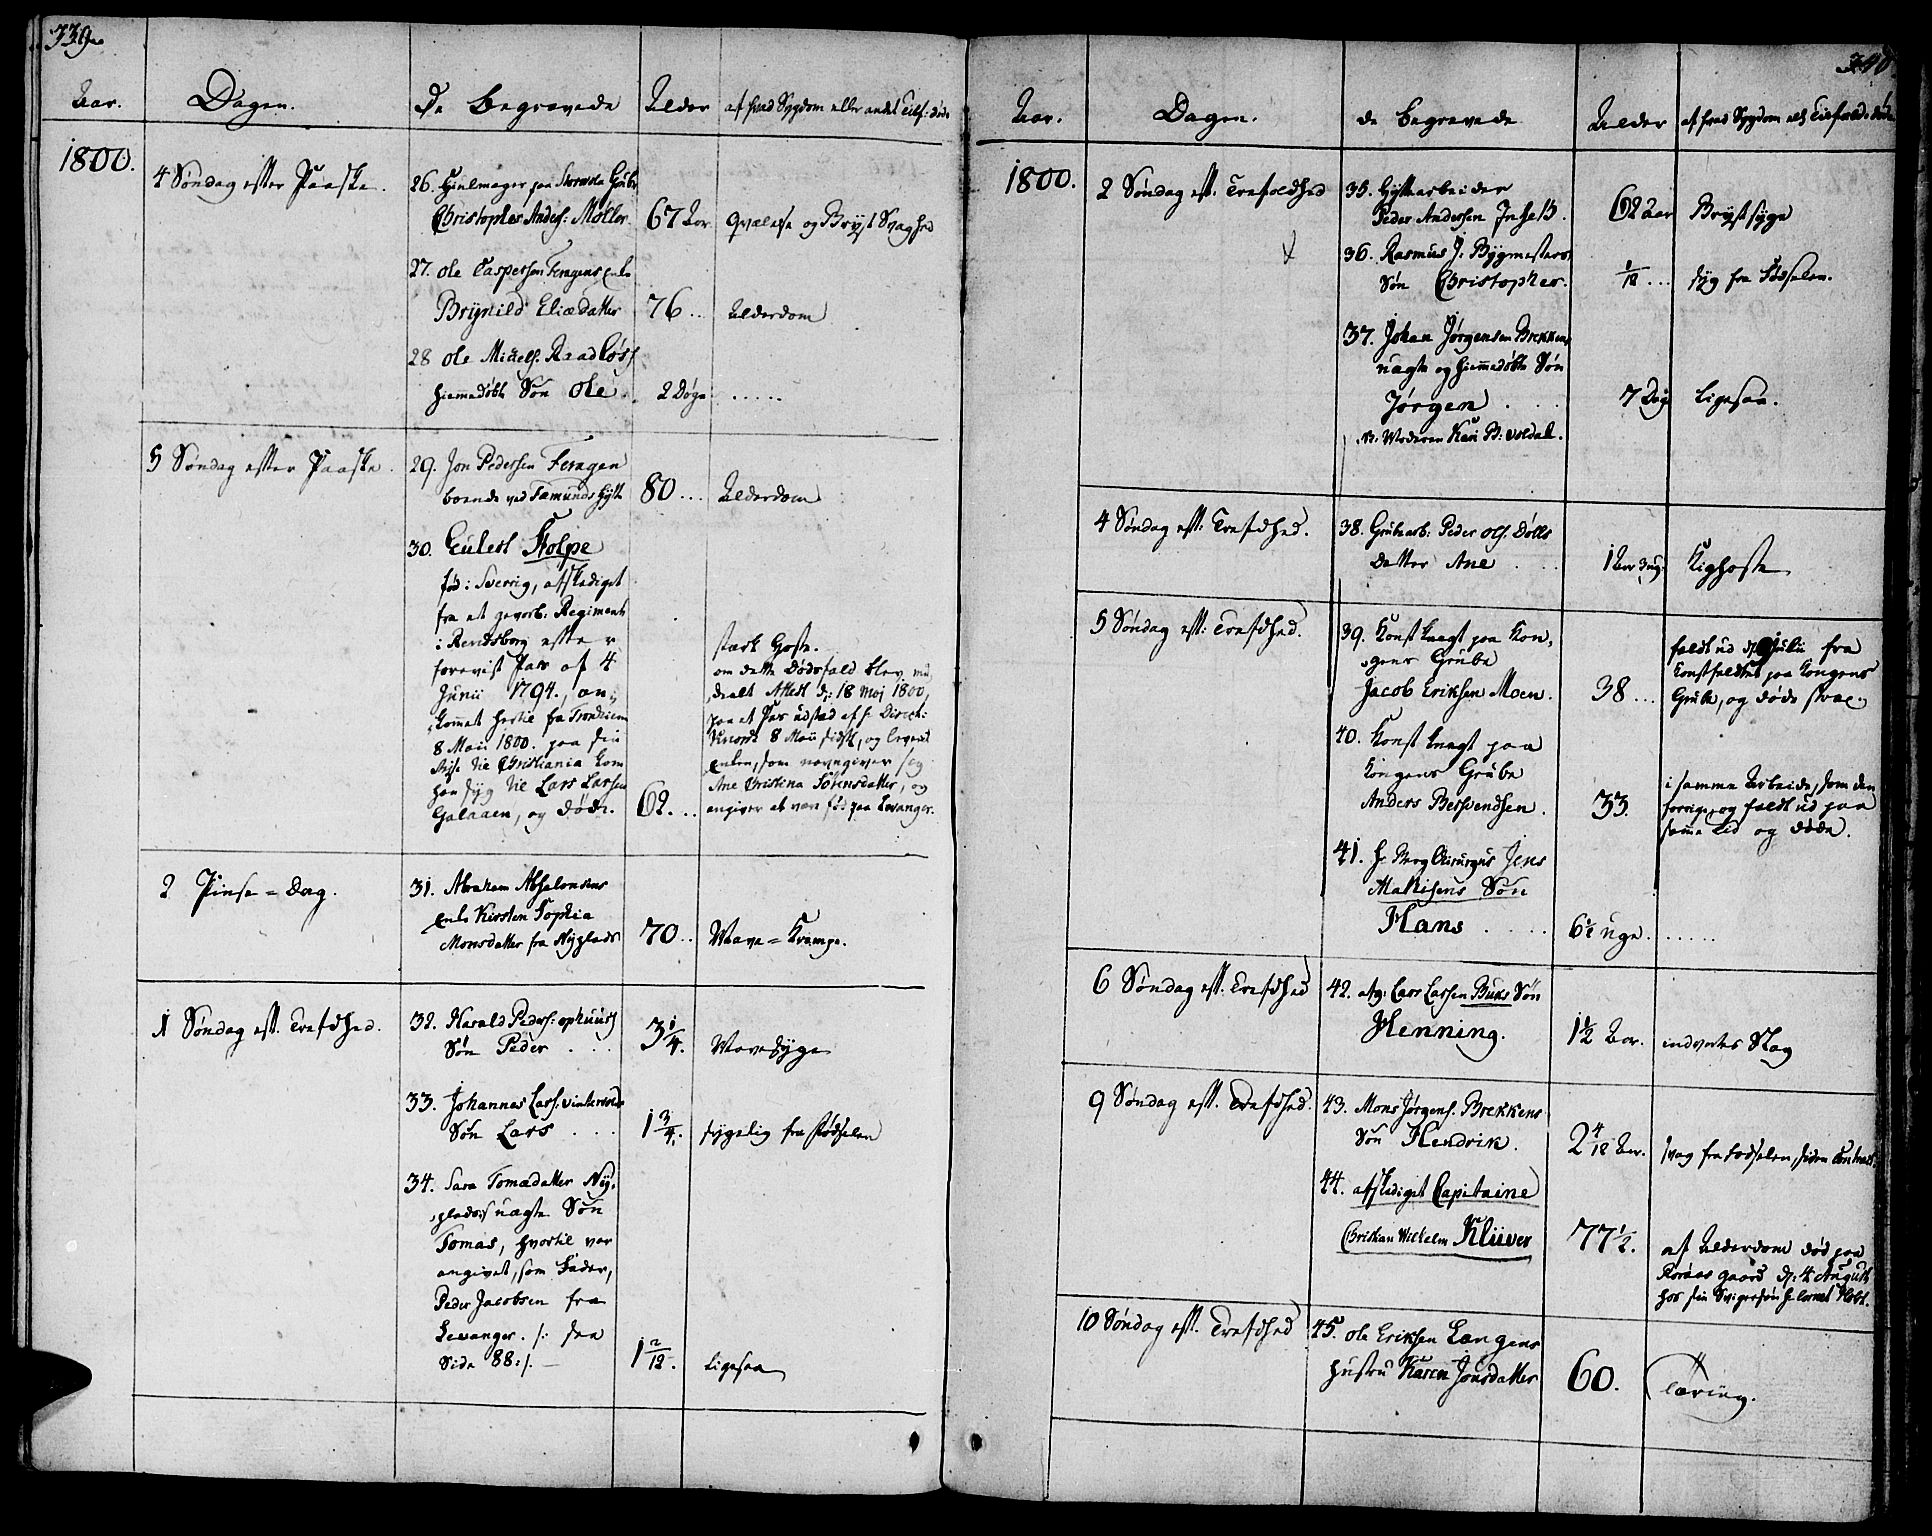 339.
Aar.
Dagen.
De Begravede
Alder
af hvad Sygdom eller andet Tilf: døde
1800.
4 Søndag efter Paaske.
26. Hiulmager paa Storvola Grube
Christopher Anders: Møller.
67 Aar
Qvælelse og Bryst Svaghed
27. Ole Caspersen Feragens Enke
Brynild Eliædatter
76...
Alderdom
28 Ole Mikels. Raadløsˢ
hiemmedøbte Søn Ole.
2 Døgn
.....
5 Søndag efter Paaske.
29. Jon Pedersen Feragen
boende ved Fæmunds Hytte
80...
Alderdom
30. Eulert Stolpe
fød i Sverrig, afskediget
fra et gevorb: Regiment
i Rendsborg efter
foreviist Pass af 4
Junii 1794, an-
kommet hertil fra Trondhiem
8 Maii 1800. paa sin
Reise til Christiania kom
han syg til Lars Larsen
Galaaen, og døde.
62...
stærk Hoste.
om dette Dødsfald blev med
deelt Attest d: 18 Maj 1800,
paa et Pas udstæd af H: Direct:
Knorte 8 Maii sidstl, og leveret
Enken, som navngiver sig
Ane Christina Sørensdatter, og
angiver at være fød paa Levanger.
2 Pinse=Dag.
31. Abraham Absalonsens
Enke Kirsten Sophia
Monsdatter fra Nyplads
70..
Mave=Krampe.
1 Søndag eft. Trefdhed.
32. Harald Peders: ophuusˢ
Søn Peder ...
3 1/4.
Mavesyge
33. Johannes Lars: vintervolds
Søn Lars ...
1 3/4.
sygelig fra Fødselen
34. Sara Tomædatter Ny-
pladsˢ uægte Søn
Tomas, hvortil var
angivet, som Fader,
Peder Jacobsen fra
Levanger. /: see
Side 88 :/. —
1 2/12.
ligesaa
340.
Aar.
Dagen.
de Begravede
Alder
af hvad Sygdom ell: Tilfælde døde
1800.
2 Søndag eft: Trefoldhed
35. Hyttearbeider
Peder Andersen Insetˢ.
62 Aar
Brystsyge
36. Rasmus J. Bygmesters
Søn Christopher.
1/12...
syg fra Fødselen.
37. Johan Jørgensen Brekkens
uægte og hiemmedøbte Søn
Jørgen ...
v: Moderen Kari P: voldal.
7 Dage
Ligesaa.
4 Søndag eft: Trefdhed.
38. Grubearb: Peder Ols. Dølls
Datter Ane ...
1 Aar 3 ug:
Kighoste
5 Søndag eft: Trefdhed.
39. Konst knegt paa Kon-
gens Grube
Jacob Eriksen Moen.
38...
faldt ud d: Julii fra
Konstfeldtet paa Kongens
Grube, og døde strax.
40. Konst knegt paa
Kongens Grube
Anders Bersvendsen.
33.
i samme Arbeide, som den
forrige, og faldt ud paa
samme Tid og døde.
41. Hr Berg Chirurgus Jens
Mathisens Søn
Hans ....
6½ uge.
.....
6 Søndag eft. Trefdhed
42. afg: Lars Larsen Buks Søn
Henning.
1½ Aar.
indvortes Slag
9 Søndag eft. Trefdhed.
43. Mons Jørgens. Brekkens
Søn Hendrik.
2 4/12 Aar.
svag fra Fødselen, siden Contract.
44. afskediget Capitaine
Christian Wilhelm Klüwer
77½.
af Alderdom død paa
Røraas gaard d: 4 August
hos sin Svigersøn H:
10 Søndag eft. Trefdhed
45. Ole Eriksen Længens
Hustru Karen Jonsdatter
60.
Tæring.